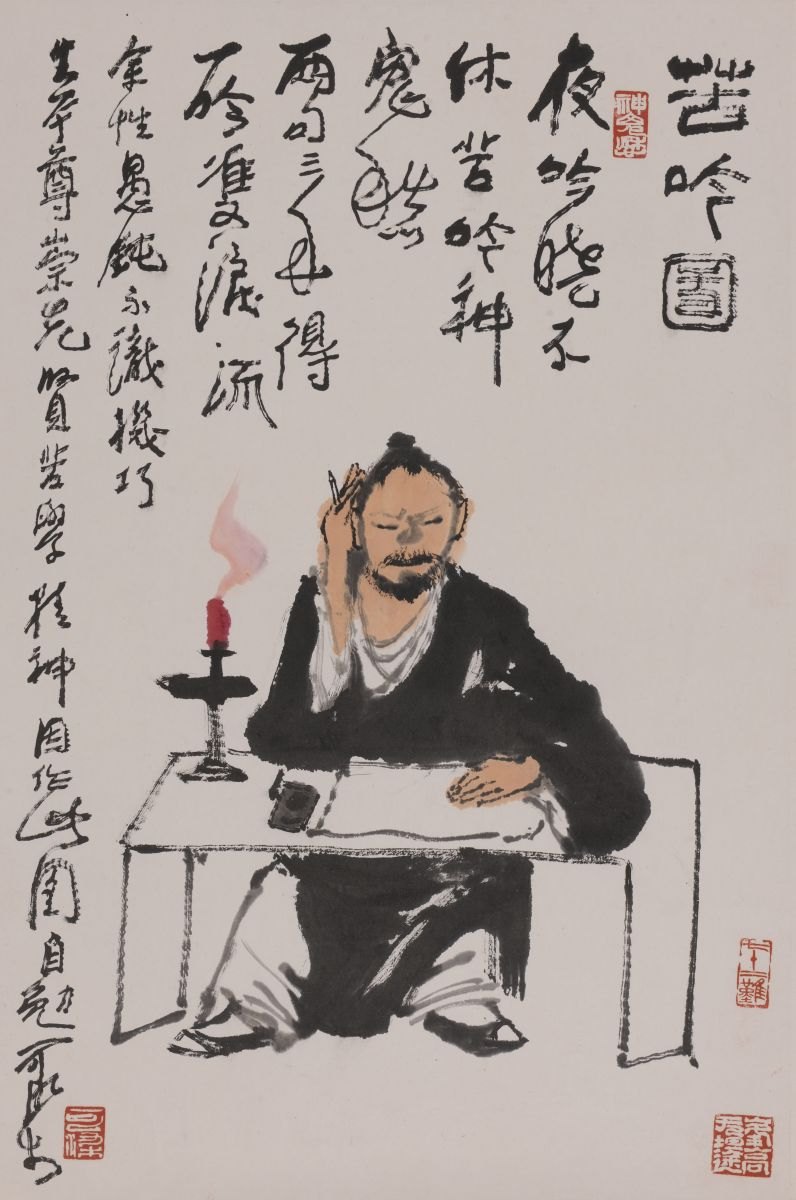 苦吟圖
夜吟曉不
休苦吟神
鬼愁
兩句三年得
一吟雙淚流
余性愚鈍不識機巧
生平尊崇先賢苦學精神因作此圖自勉可染
七十二難
峰高無坦途
可染